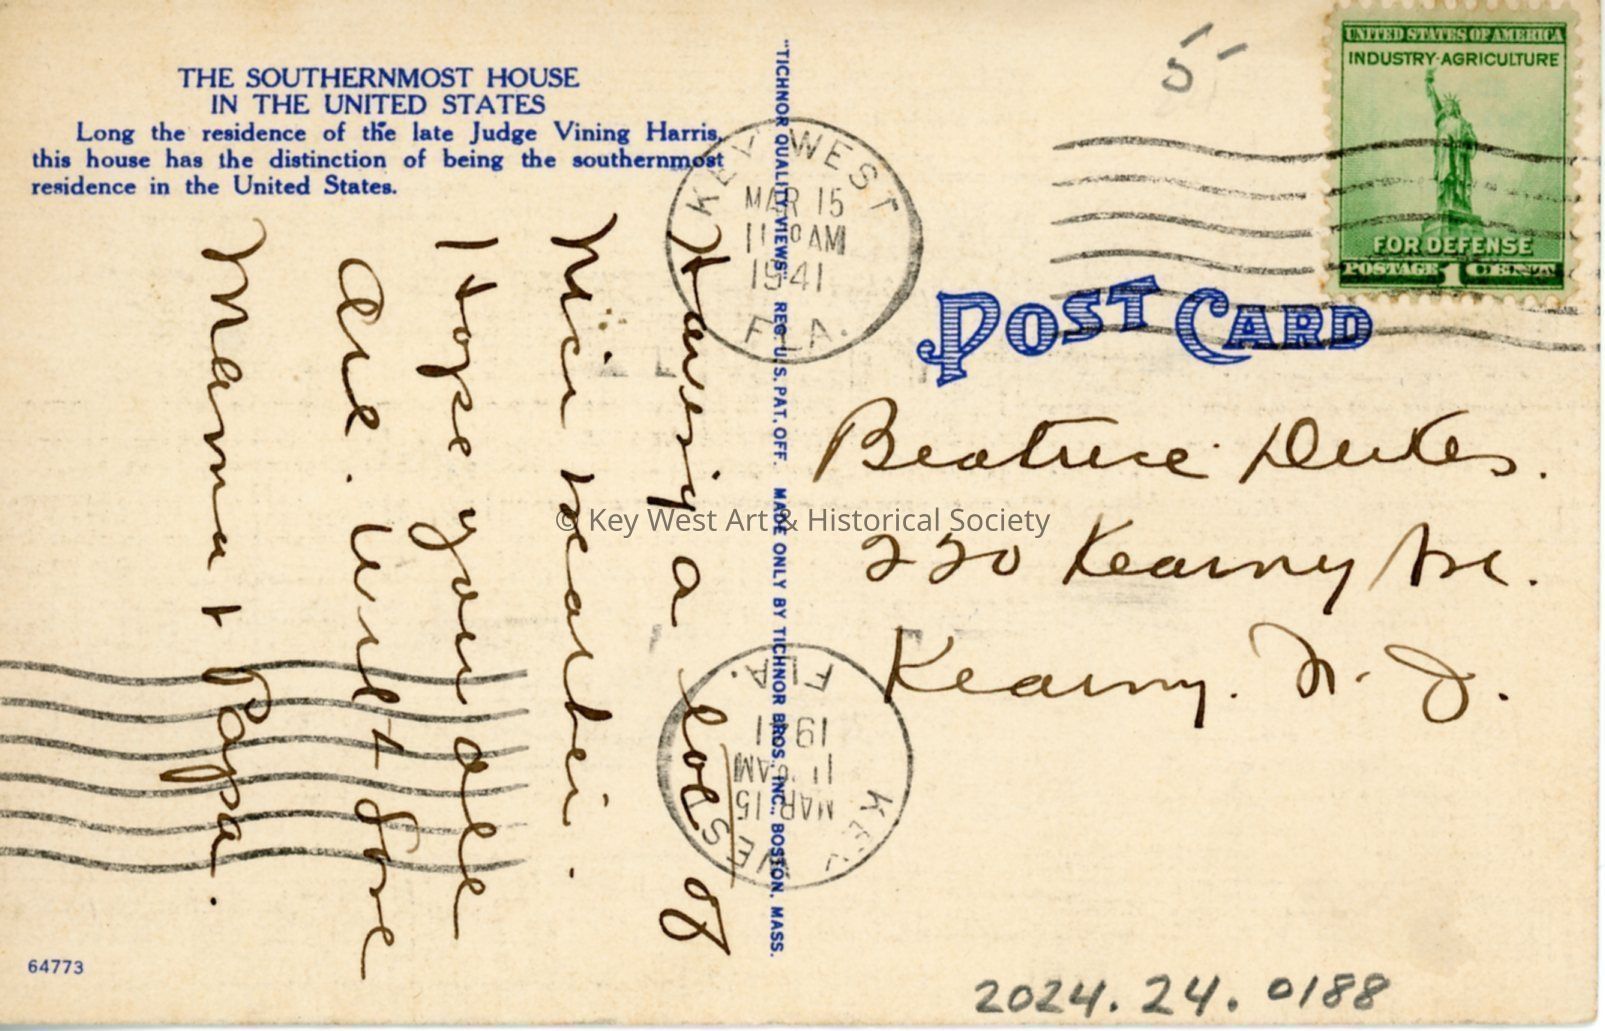 THE SOUTHERNMOST HOUSE
IN THE UNITED STATES
Long the residence of the late Judge Vining Harris,
this house has the distinction of being the southernmost
residence in the United States.
Haveing a lot of
Nice weather.
I Hope you all
are. With Love
Mama + Papa.
64773
"TICHNOR QUALITY VIEWS" REG. U.S. PAT. OFF. MADE ONLY BY TICHNOR BROS., INC., BOSTON, MASS.
KEY WEST
MAR 15
AM
1941
FLA.
5
UNITED STATES OF AMERICA
INDUSTRY·AGRICULTURE
FOR DEFENSE
POSTAGE 1 CENT
POST CARD
Beatrice Dukes.
220 Kearny Ave.
Kearny. N. J.
KEY WEST
MAR 15
AM
1941
FLA.
© Key West Art & Historical Society
2024.24.0188